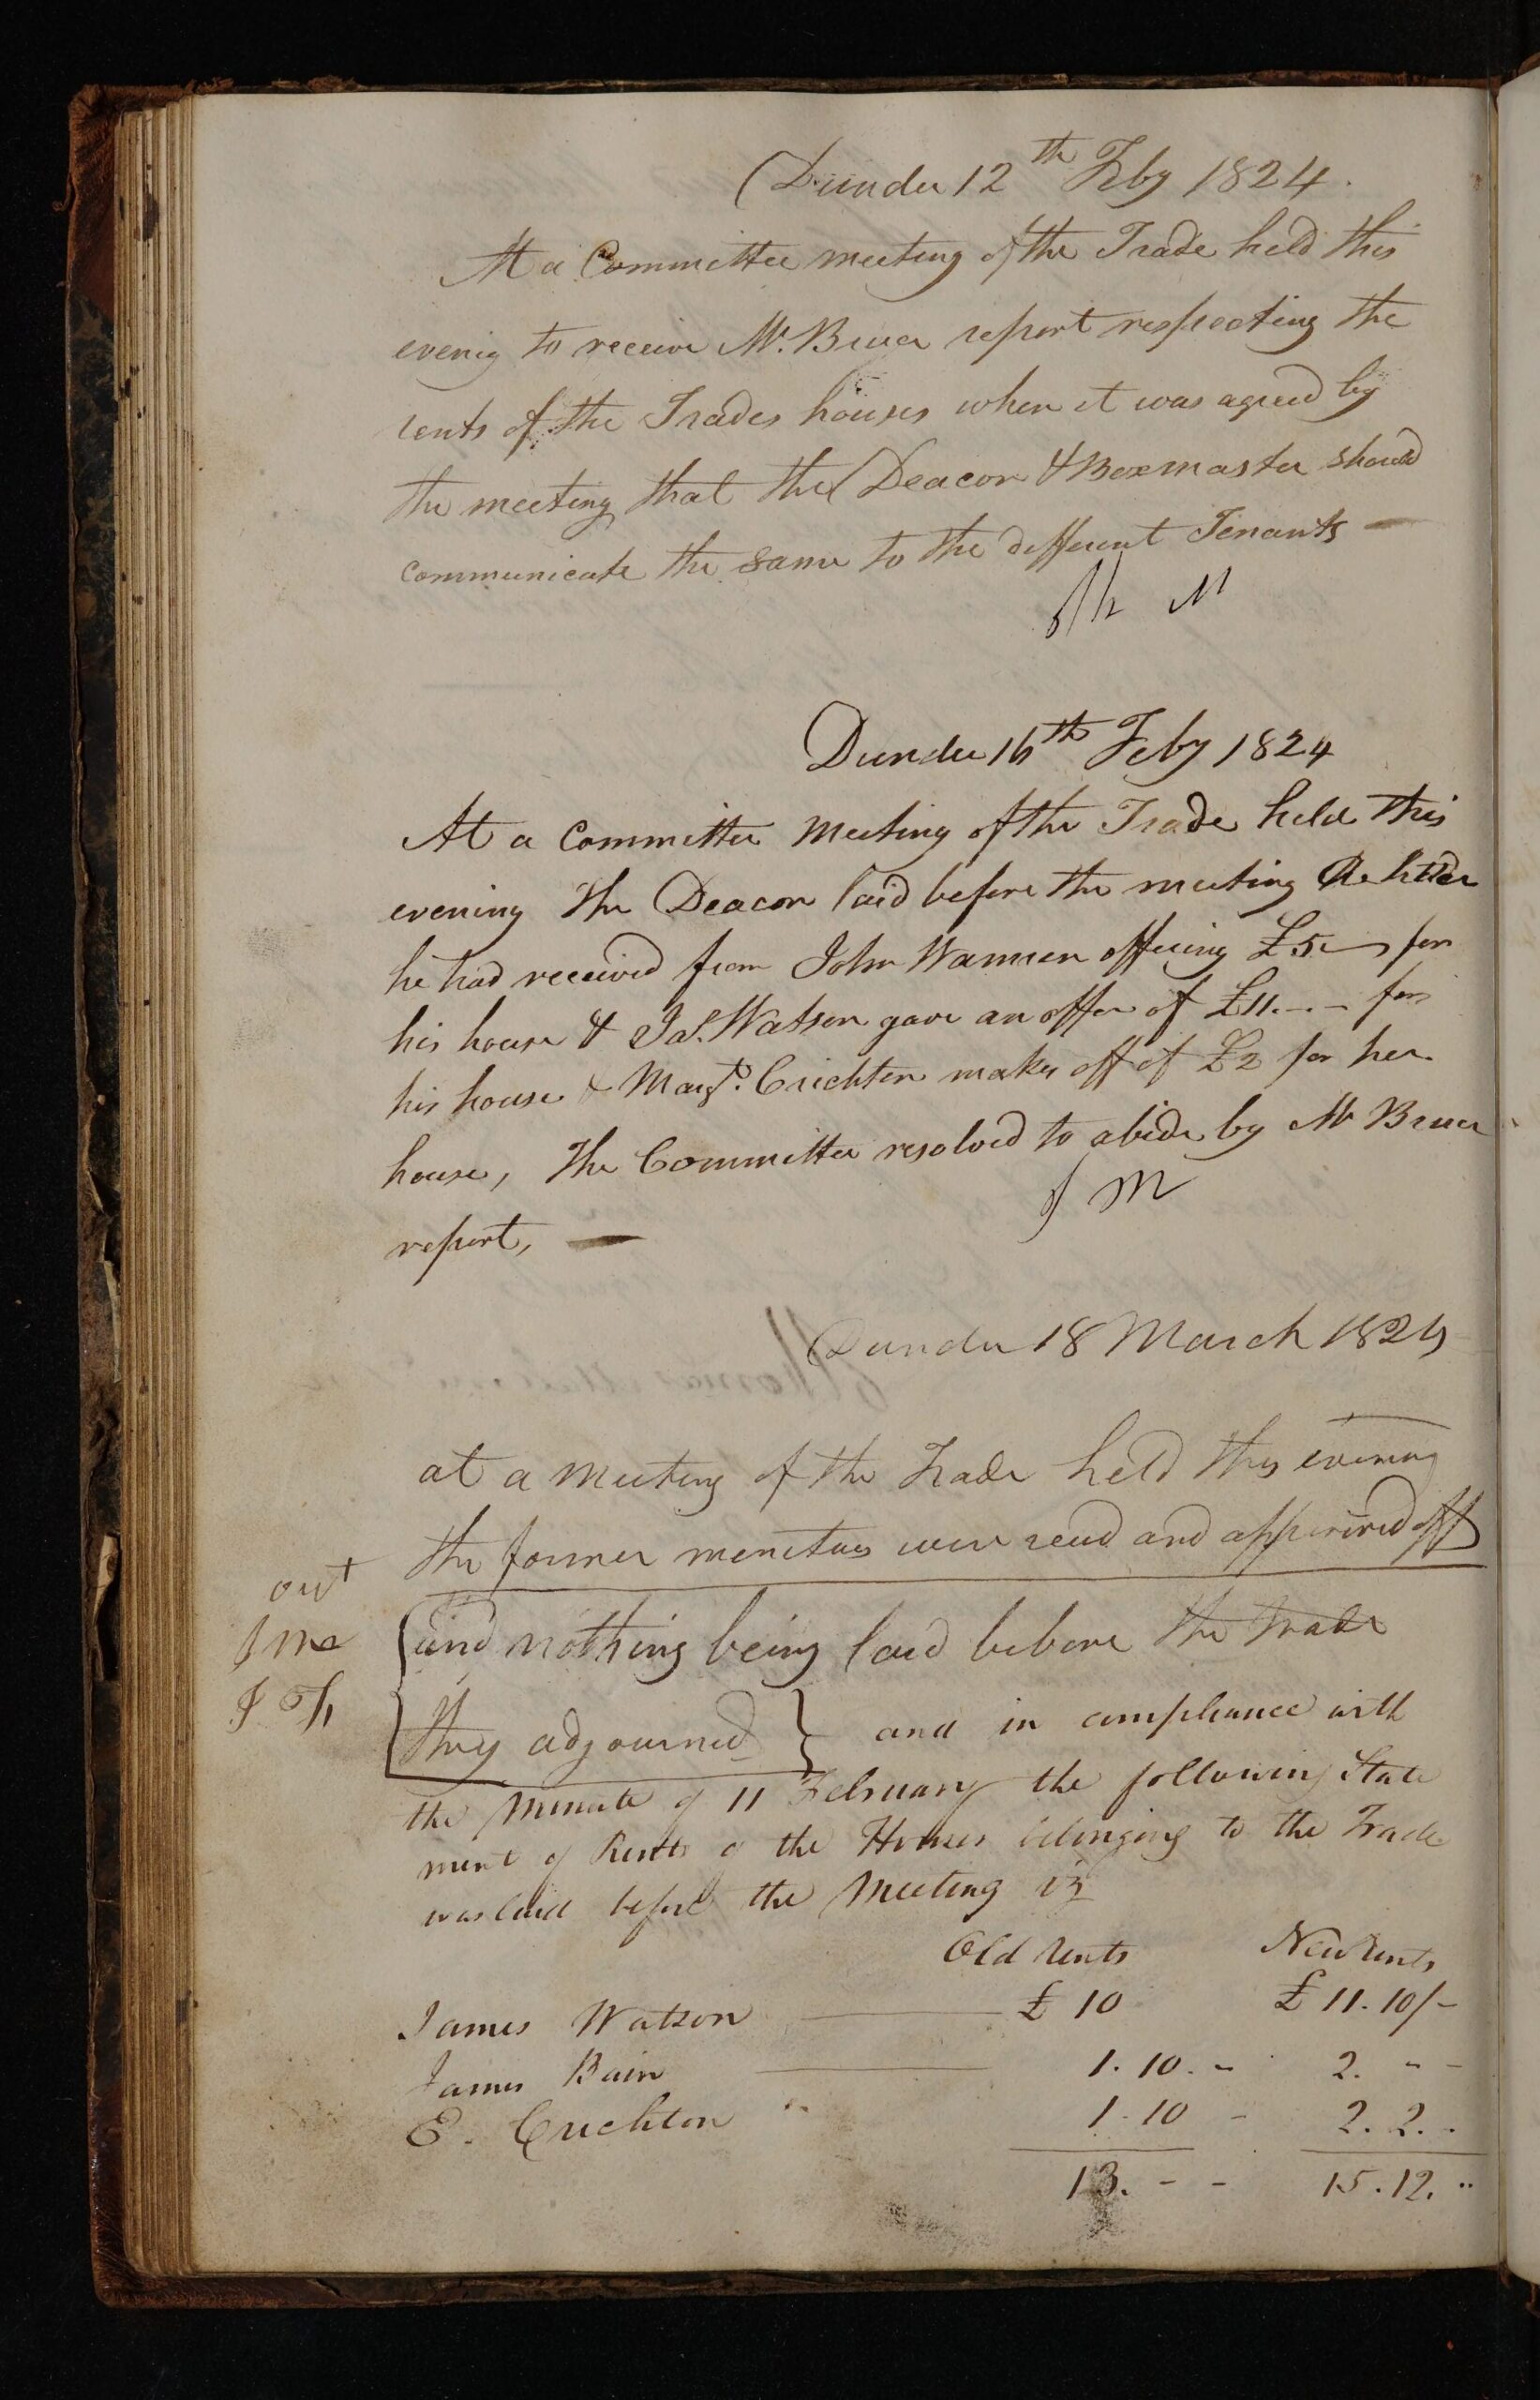 Dundee 12th Feby 1824.
At a Committee meeting of the Trade held this
evenig to receive Mr. Bruce report respecting the
rents of the Trades houses when it was agreed by
the meeting that the Deacon & Boxmaster should
communicate the same to the different Tenants —
Dundee 16th Feby 1824
At a Committee Meeting of the Trade held this
evening The Deacon laid before the meeting A letter
he had received from John offering £5 — for
his house & Jas. Watson gave an offer of £11.-.- for
his house & Margt. Crichton makes off of £2 for her
house, The Committee resolved to abide by Mr Bruce
J M
report, —
Dundee 18 March 1824
at a Meeting of the Trade held this evening
the former menetues were read and approived off
out
and nothing being laid before the trade
J Mc
they adjourned } and in compliance with
the Minute of 11 February the following State
ment of Rents of the Houses belonging to the Trade
was laid before the Meeting viz
Old rents New rents
James Watson — £ 10 £ 11.10/-
James Bain — 1.10.- 2. - -
E. Crichton " 1.10 - 2.2.-
13. - - 15.12. "